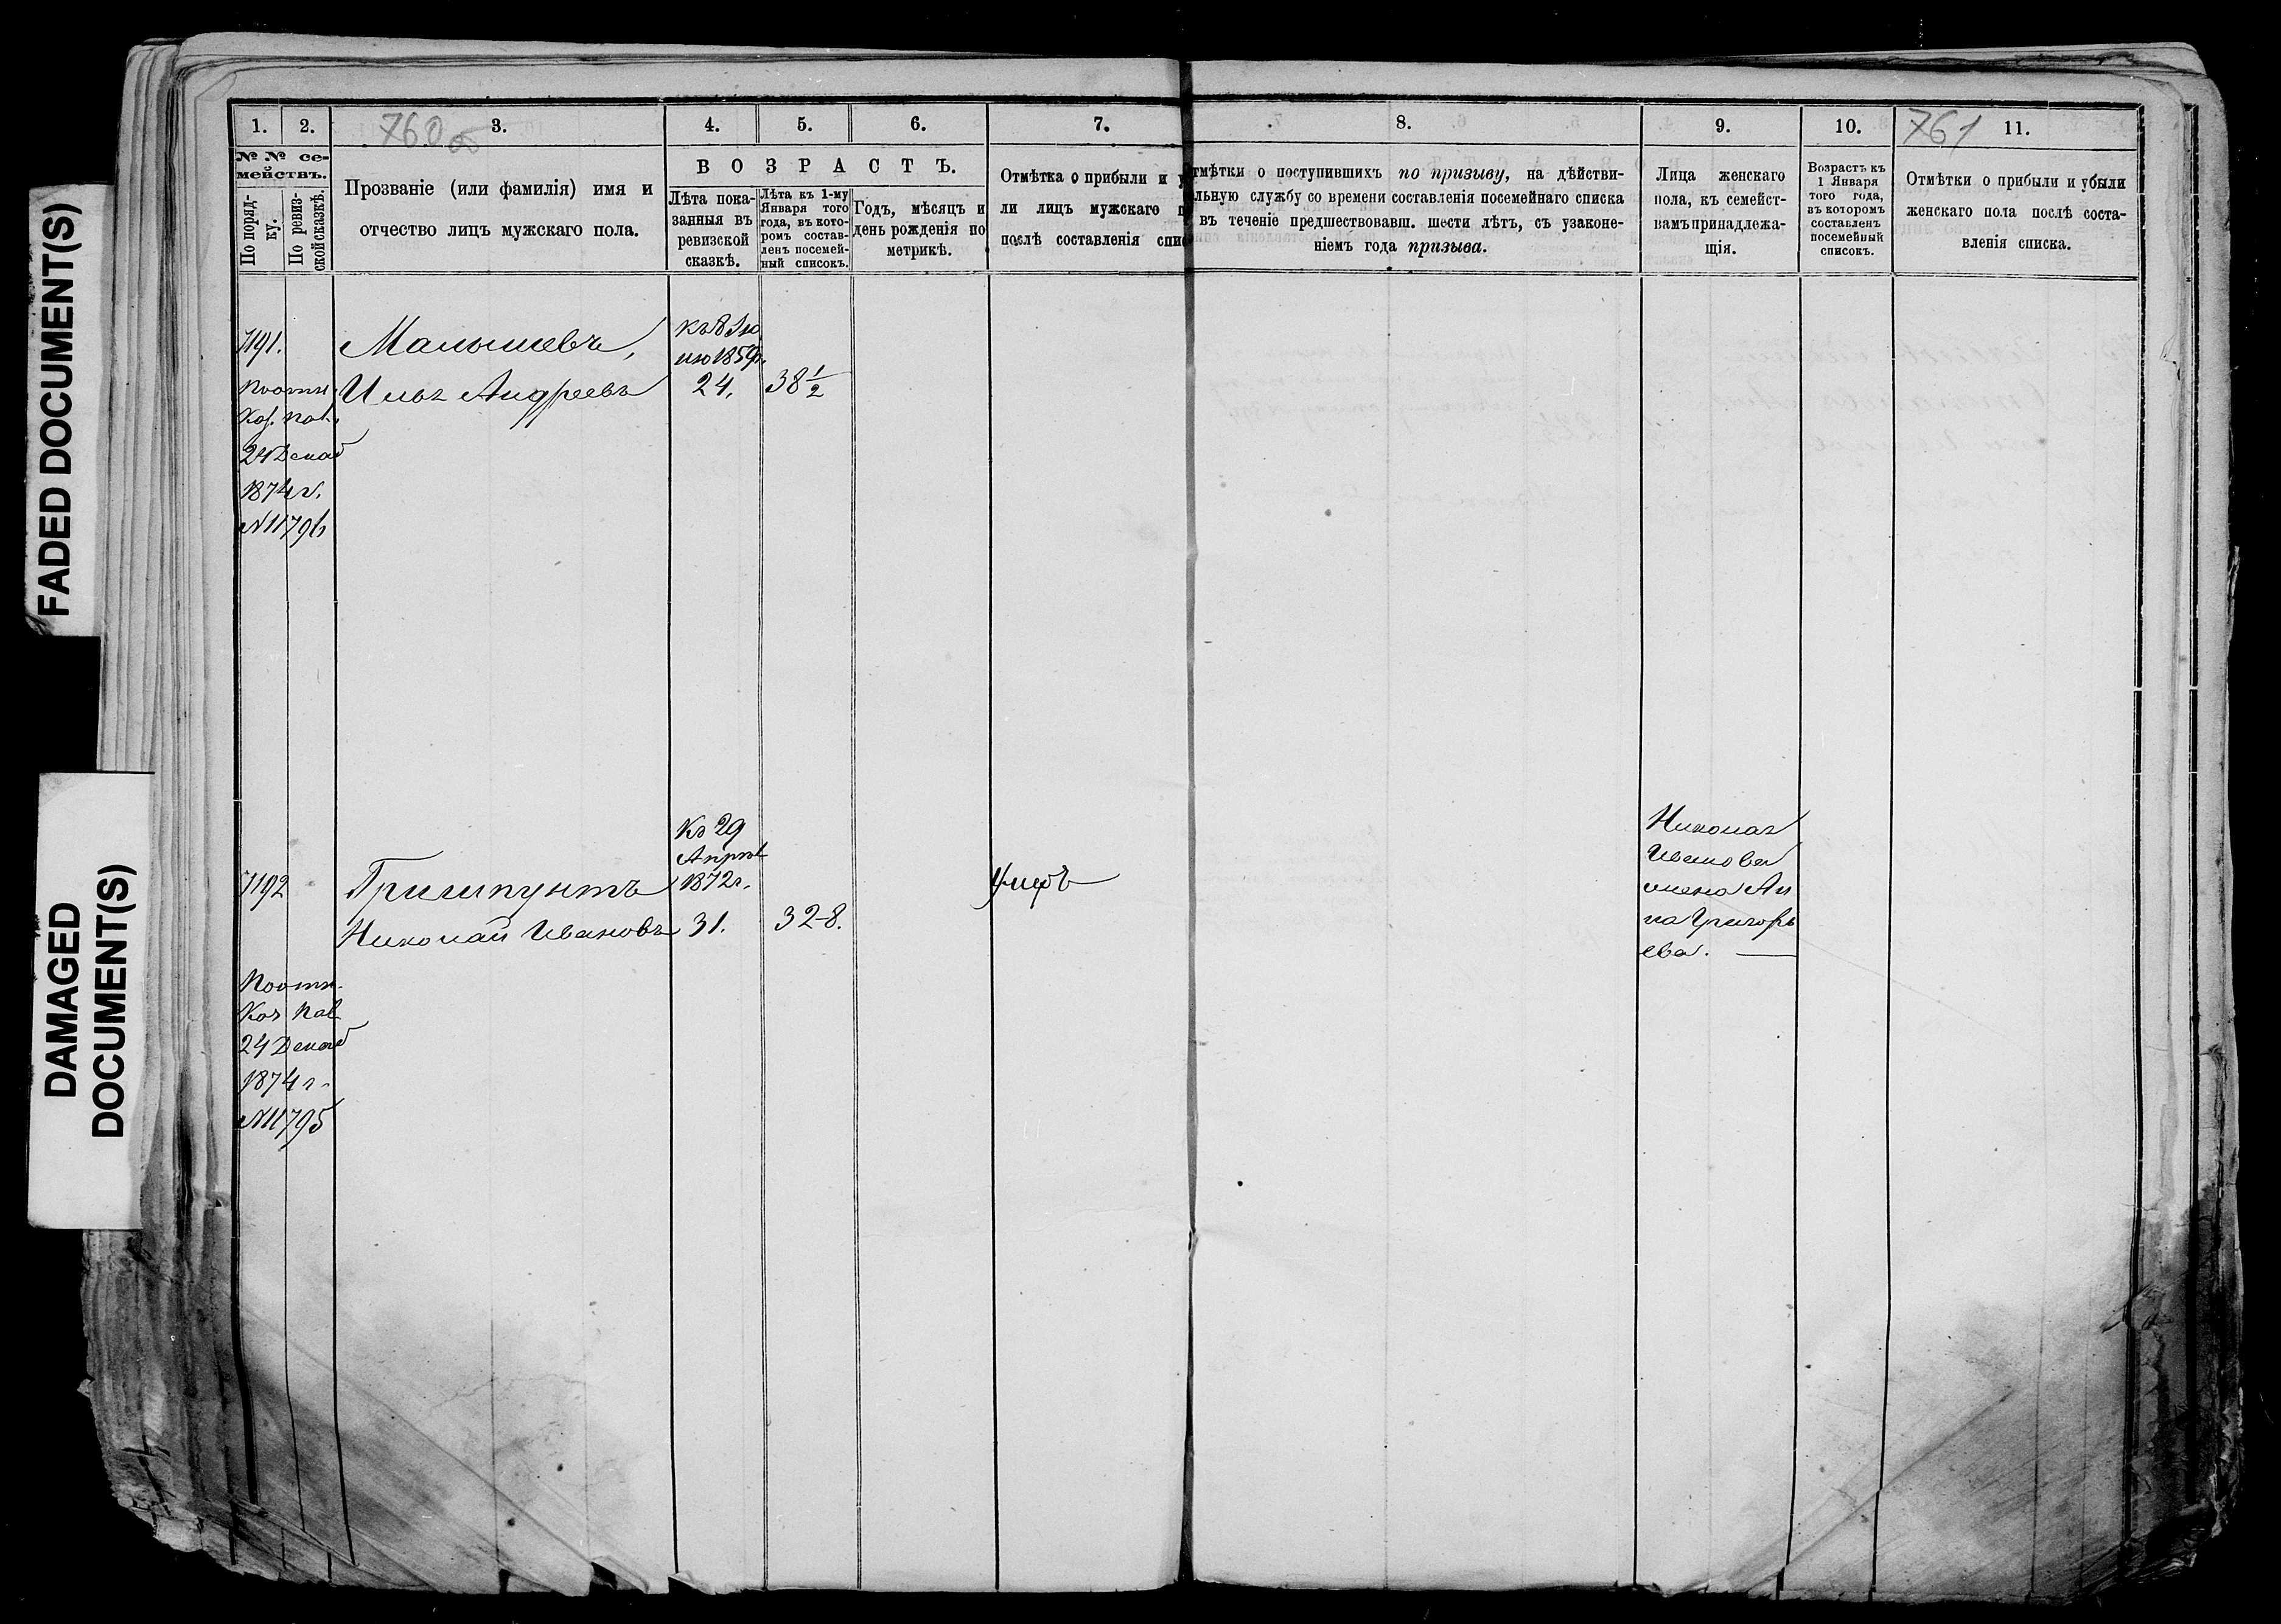 FADED DOCUMENT(S)
DAMAGED
DOCUMENT(S)
1.
2.
3.
760 об
4.
5.
6.
7.
8.
9.
10.
761
11.
№ № се-
мействъ.
По поряд-
ку.
По ревиз-
ской сказкѣ.
Прозваніе (или фамилія) имя и
отчество лицъ мужскаго пола.
ВОЗРАСТЪ.
Лѣта пока-
занныя въ
ревизской
сказкѣ.
Лѣта къ 1-му
Января того
года, въ кото-
ромъ состав-
ленъ посемей-
ный списокъ.
Годъ, мѣсяцъ и
день рожденія по
метрикѣ.
Отмѣтка о прибыли и у
ли лицъ мужскаго п
послѣ составленія спи
тмѣтки о поступившихъ по призыву, на дѣйстви-
льную службу со времени составленія посемейнаго списка
въ теченіе предшествовавш. шести лѣтъ, съ узаконе-
ніемъ года призыва.
Лица женскаго
пола, къ семейст-
вамъ принадлежа-
щія.
Возрастъ къ
1 Января
того года,
въ которомъ
составленъ
посемейный
списокъ.
Отмѣтки о прибыли и убыли
женскаго пола послѣ соста-
вленія списка.
7191.
Малышевъ,
къ 8 Iю
ню 1859г.
Илья Андреевъ
24.
38 1/2
24 Декаб
1874 г.
№ 11796
7192
Гришпунтъ
Николай Ивановъ
Къ 29
Апрѣл
1872 г.
31.
32-8.
Николая
Иванова
жена Ан
на Григорь
ева.
24 Декаб
1874 г.
№ 11795